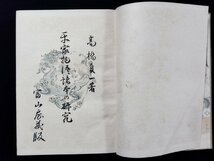 高橋貞一著
平家物語諸本の研究
冨山房發販